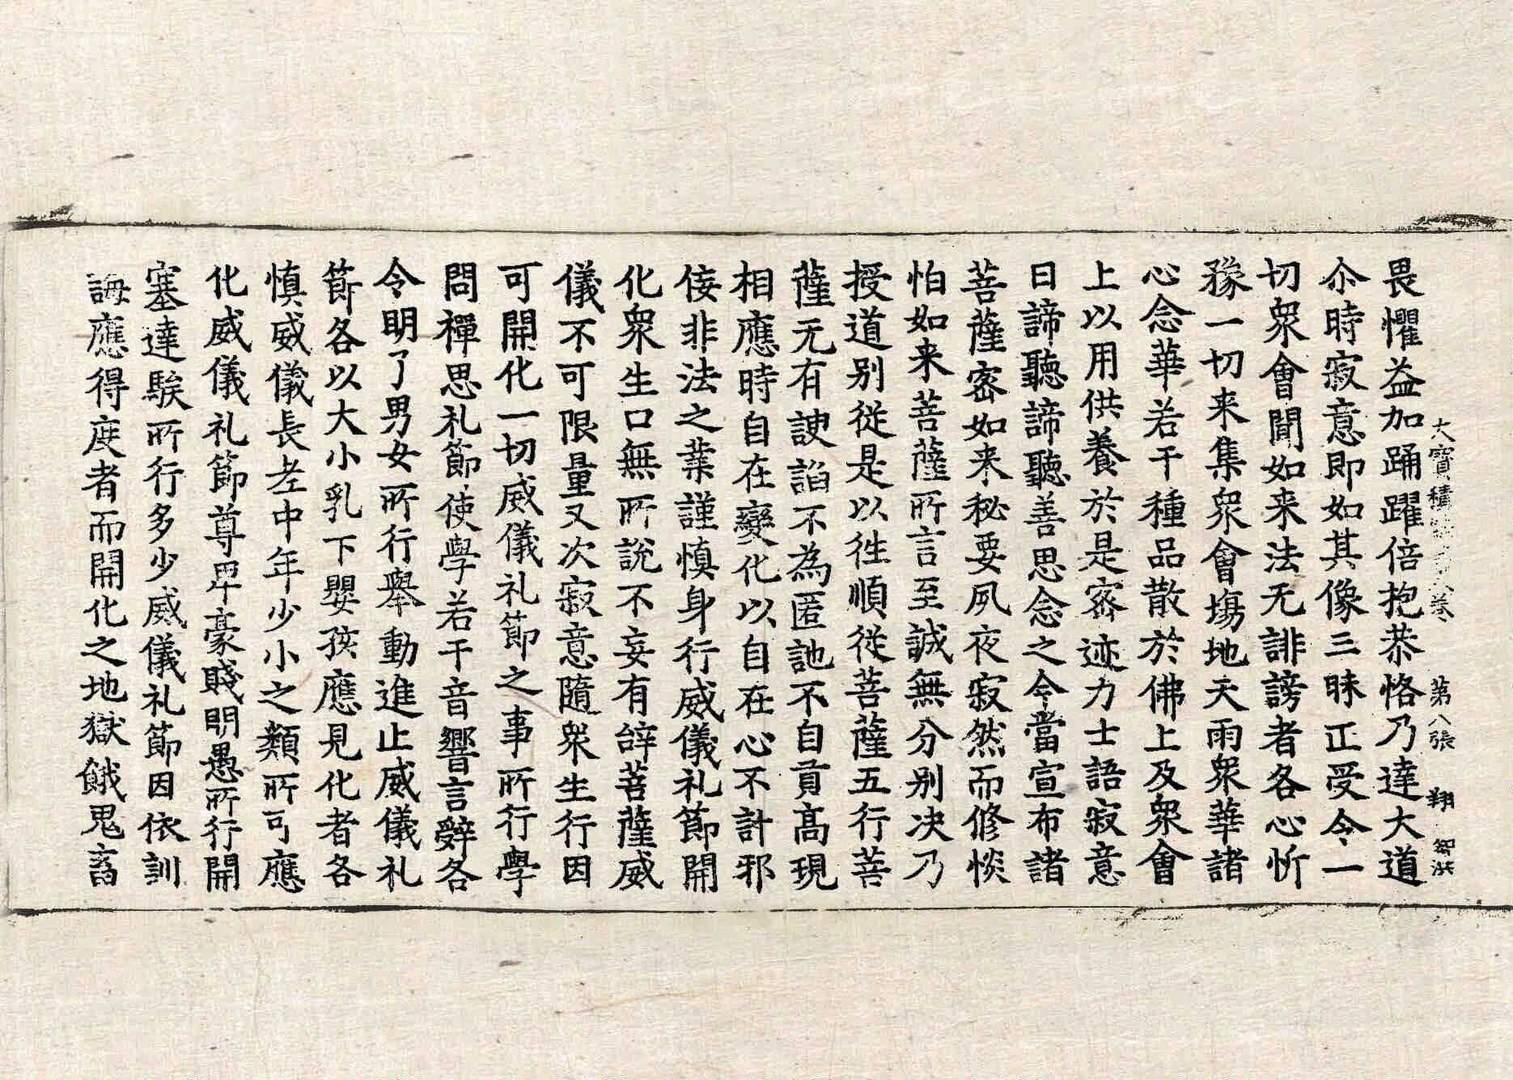 大寶積 卷 第八張 翔
畏懼益加踊躍倍抱恭恪乃達大道
尒時寂意即如其像三昧正受令一
切衆會聞如来法无誹謗者各心忻
豫一切来集衆會塲地天雨衆華諸
心念華若干種品散於佛上及衆會
上以用供養於是密迹力士語寂意
曰諦聽諦聽善思念之今當宣布諸
菩薩密如来秘要夙夜寂然而修惔
怕如来菩薩所言至誠無分別决乃
授道別從是以徃順從菩薩五行菩
薩无有諛謟不為匿訑不自貢髙現
相應時自在變化以自在心不計邪
倿非法之業謹慎身行威儀礼節開
化衆生口無所說不妄有辝菩薩威
儀不可限量又次寂意隨衆生行因
可開化一切威儀礼節之事所行學
問禪思礼節使學若干音響言辤各
令明了男女所行舉動進止威儀礼
節各以大小乳下嬰孩應見化者各
慎威儀長老中年少小之類所可應
化威儀礼節尊卑豪賤明愚所行開
塞達騃所行多少威儀礼節因依訓
誨應得度者而開化之地獄餓鬼畜